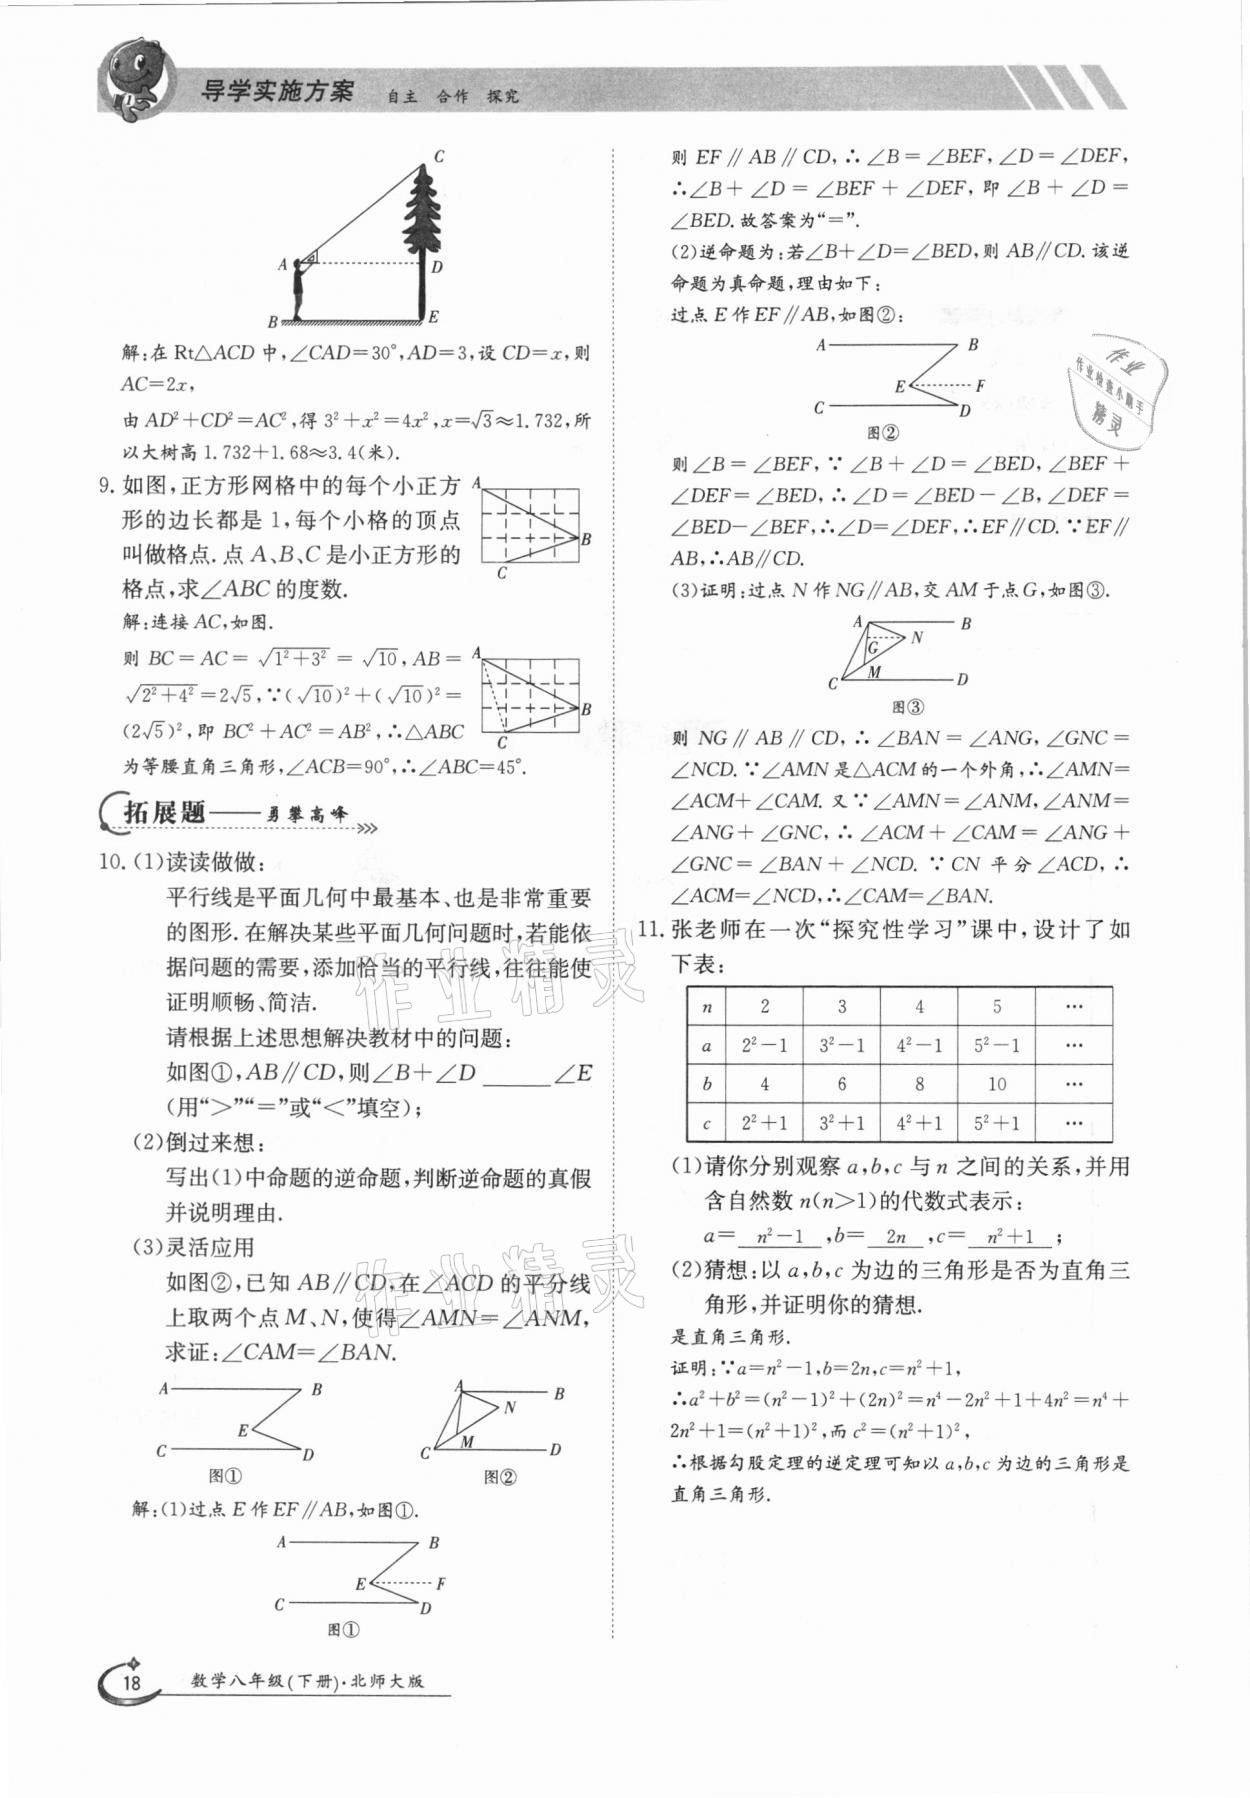 导学实施方案 自主 合作 探究
C
A
D
B
E
解:在 Rt△ACD 中,∠CAD=30°,AD=3,设 CD=x,则
AC=2x,
由 AD²+CD²=AC²,得 3²+x²=4x²,x=√3≈1.732,所
以大树高 1.732+1.68≈3.4(米).
9. 如图,正方形网格中的每个小正方
形的边长都是 1,每个小格的顶点
叫做格点. 点 A、B、C 是小正方形的
格点,求∠ABC 的度数.
A
B
C
解:连接 AC,如图.
则 BC=AC=√(1²+3²)=√10,AB=
√(2²+4²)=2√5,∵(√10)²+(√10)²=
(2√5)²,即 BC²+AC²=AB²,∴△ABC
为等腰直角三角形,∠ACB=90°,∴∠ABC=45°.
A
B
C
拓展题——勇攀高峰
10. (1)读读做做:
平行线是平面几何中最基本、也是非常重要
的图形. 在解决某些平面几何问题时,若能依
据问题的需要,添加恰当的平行线,往往能使
证明顺畅、简洁.
请根据上述思想解决教材中的问题:
如图①,AB∥CD,则∠B+∠D ______ ∠E
(用“>”“=”或“<”填空);
(2)倒过来想:
写出(1)中命题的逆命题,判断逆命题的真假
并说明理由.
(3)灵活应用
如图②,已知 AB∥CD,在∠ACD 的平分线
上取两个点 M、N,使得∠AMN=∠ANM,
求证:∠CAM=∠BAN.
A B
E
C D
图①
A B
N
M
C D
图②
解:(1)过点 E 作 EF∥AB,如图①.
A B
E F
C D
图①
则 EF∥AB∥CD,∴∠B=∠BEF,∠D=∠DEF,
∴∠B+∠D=∠BEF+∠DEF,即∠B+∠D=
∠BED. 故答案为“=”.
(2)逆命题为:若∠B+∠D=∠BED,则 AB∥CD. 该逆
命题为真命题,理由如下:
过点 E 作 EF∥AB,如图②:
A B
E F
C D
图②
则∠B=∠BEF,∵∠B+∠D=∠BED,∠BEF+
∠DEF=∠BED,∴∠D=∠BED-∠B,∠DEF=
∠BED-∠BEF,∴∠D=∠DEF,∴EF∥CD. ∵EF∥
AB,∴AB∥CD.
(3)证明:过点 N 作 NG∥AB,交 AM 于点 G,如图③.
A B
G N
M
C D
图③
则 NG∥AB∥CD,∴∠BAN=∠ANG,∠GNC=
∠NCD. ∵∠AMN 是△ACM 的一个外角,∴∠AMN=
∠ACM+∠CAM. 又∵∠AMN=∠ANM,∠ANM=
∠ANG+∠GNC,∴∠ACM+∠CAM=∠ANG+
∠GNC=∠BAN+∠NCD. ∵CN 平分∠ACD,∴
∠ACM=∠NCD,∴∠CAM=∠BAN.
11. 张老师在一次“探究性学习”课中,设计了如
下表:
n 2 3 4 5 …
a 2²-1 3²-1 4²-1 5²-1 …
b 4 6 8 10 …
c 2²+1 3²+1 4²+1 5²+1 …
(1)请你分别观察 a,b,c 与 n 之间的关系,并用
含自然数 n(n>1)的代数式表示:
a= n²-1 ,b= 2n ,c= n²+1 ;
(2)猜想:以 a,b,c 为边的三角形是否为直角三
角形,并证明你的猜想.
是直角三角形.
证明:∵a=n²-1,b=2n,c=n²+1,
∴a²+b²=(n²-1)²+(2n)²=n⁴-2n²+1+4n²=n⁴+
2n²+1=(n²+1)²,而 c²=(n²+1)²,
∴根据勾股定理的逆定理可知以 a,b,c 为边的三角形是
直角三角形.
作业
作业检查小助手
精灵
作业精灵
作业精灵
18 数学八年级(下册)·北师大版